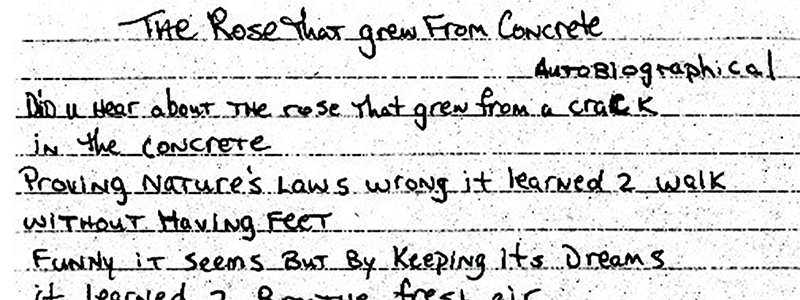 The Rose that grew From Concrete
Autobiographical
Did u Hear about The rose that grew from a crack
in the concrete
Proving Nature's Laws wrong it learned 2 walk
without Having Feet
Funny it seems But By Keeping Its Dreams
it learned 2 Breathe fresh air